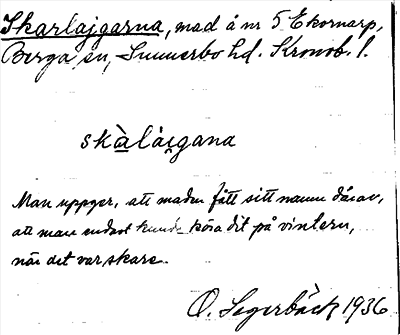 Skarlajgarna, mad å nr 5 Ekornarp,
Berga sn, Sunnerbo hd. Kronob. l.
skàlájgana
Man uppger, att maden fått sitt namn därav,
att man endast kunde köra dit på vintern,
när det var skare.
O. Segerbäck 1936